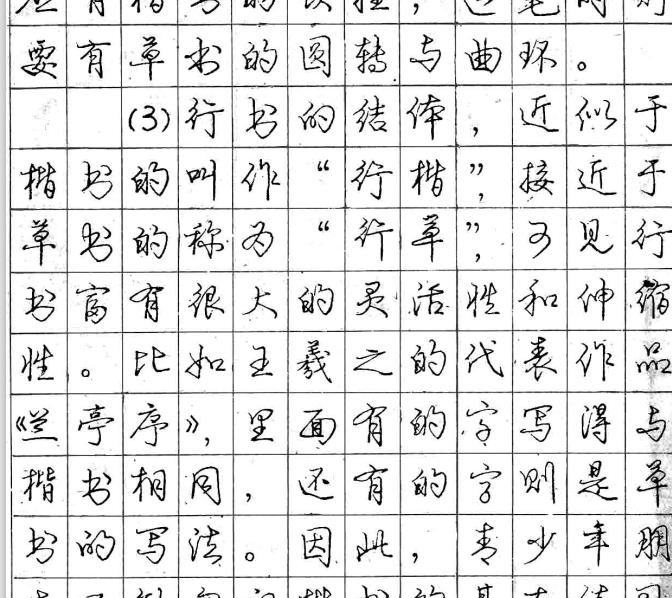 要有草书的圆转与曲环。
(3)行书的结体，近似于
楷书的叫作“行楷”，接近于
草书的称为“行草”，可见行
书富有很大的灵活性和伸缩
性。比如王羲之的代表作品
《兰亭序》，里面有的字写得与
楷书相同，还有的字则是草
书的写法。因此，青少年朋